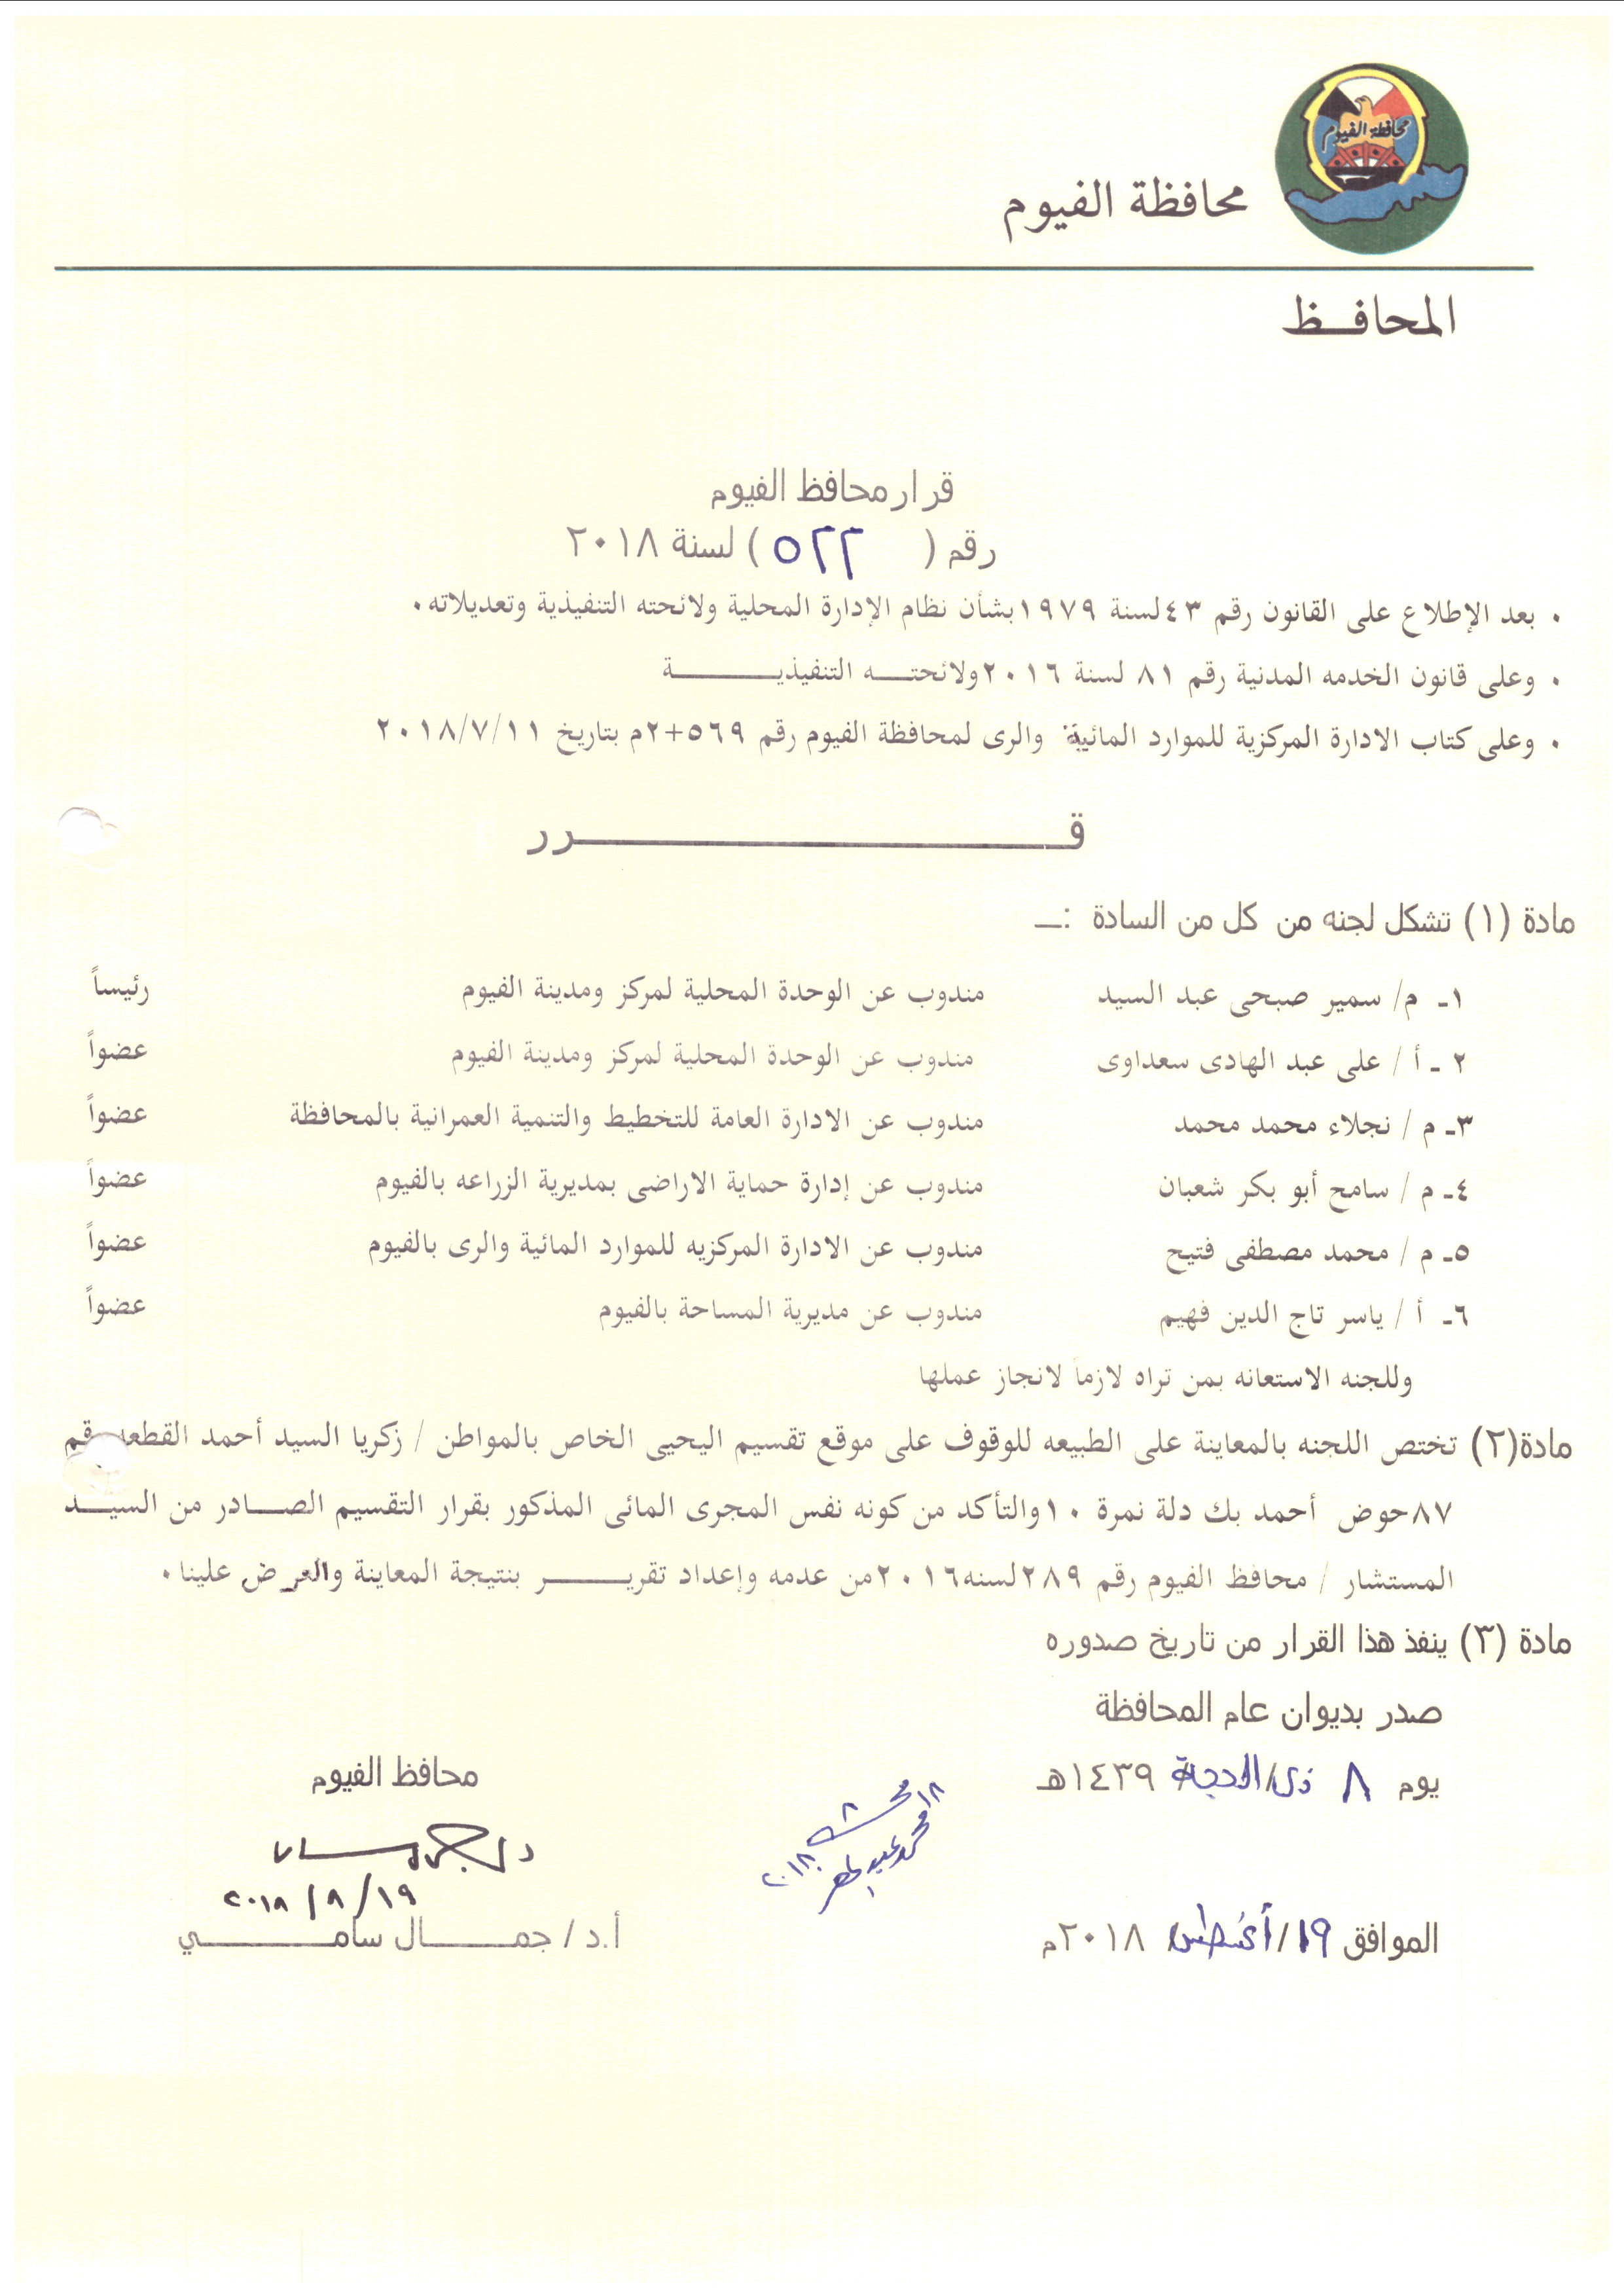 محافظة الفيوم
محافظة الفيوم
المحافــظ
قرار محافظ الفيوم
رقم ( ٥٢٢ ) لسنة ٢٠١٨
• بعد الإطلاع على القانون رقم ٤٣لسنة ١٩٧٩بشأن نظام الإدارة المحلية ولائحته التنفيذية وتعديلاته٠
• وعلى قانون الخدمه المدنية رقم ٨١ لسنة ٢٠١٦ولائحتـــه التنفيذيـــــــــــة
• وعلى كتاب الادارة المركزية للموارد المائية والرى لمحافظة الفيوم رقم ٥٦٩+٢م بتاريخ ٢٠١٨/٧/١١
قـــــــــــــــــــــــــــــــرر
مادة (١) تشكل لجنه من كل من السادة :ــ
١ـ م/ سمير صبحى عبد السيد مندوب عن الوحدة المحلية لمركز ومدينة الفيوم رئيساً
٢ ـ أ / على عبد الهادى سعداوى مندوب عن الوحدة المحلية لمركز ومدينة الفيوم عضواً
٣ـ م / نجلاء محمد محمد مندوب عن الادارة العامة للتخطيط والتنمية العمرانية بالمحافظة عضواً
٤ـ م / سامح أبو بكر شعبان مندوب عن إدارة حماية الاراضى بمديرية الزراعه بالفيوم عضواً
٥ـ م / محمد مصطفى فتيح مندوب عن الادارة المركزيه للموارد المائية والرى بالفيوم عضواً
٦ـ أ / ياسر تاج الدين فهيم مندوب عن مديرية المساحة بالفيوم عضواً
وللجنه الاستعانه بمن تراه لازماً لانجاز عملها
مادة(٢) تختص اللجنه بالمعاينة على الطبيعه للوقوف على موقع تقسيم اليحيى الخاص بالمواطن / زكريا السيد أحمد القطعه رقم
٨٧حوض أحمد بك دلة نمرة ١٠والتأكد من كونه نفس المجرى المائى المذكور بقرار التقسيم الصـــادر من السيـــد
المستشار / محافظ الفيوم رقم ٢٨٩لسنه٢٠١٦من عدمه وإعداد تقريـــــــر بنتيجة المعاينة والعرض علينا٠
مادة (٣) ينفذ هذا القرار من تاريخ صدوره
صدر بديوان عام المحافظة
يوم ٨ ذى/الحجة ١٤٣٩هـ
محافظ الفيوم
٢٠١٨/٨/١٩
الموافق ١٩/أغسطس ٢٠١٨م
أ.د/ جمــــــال سامـــــــــي